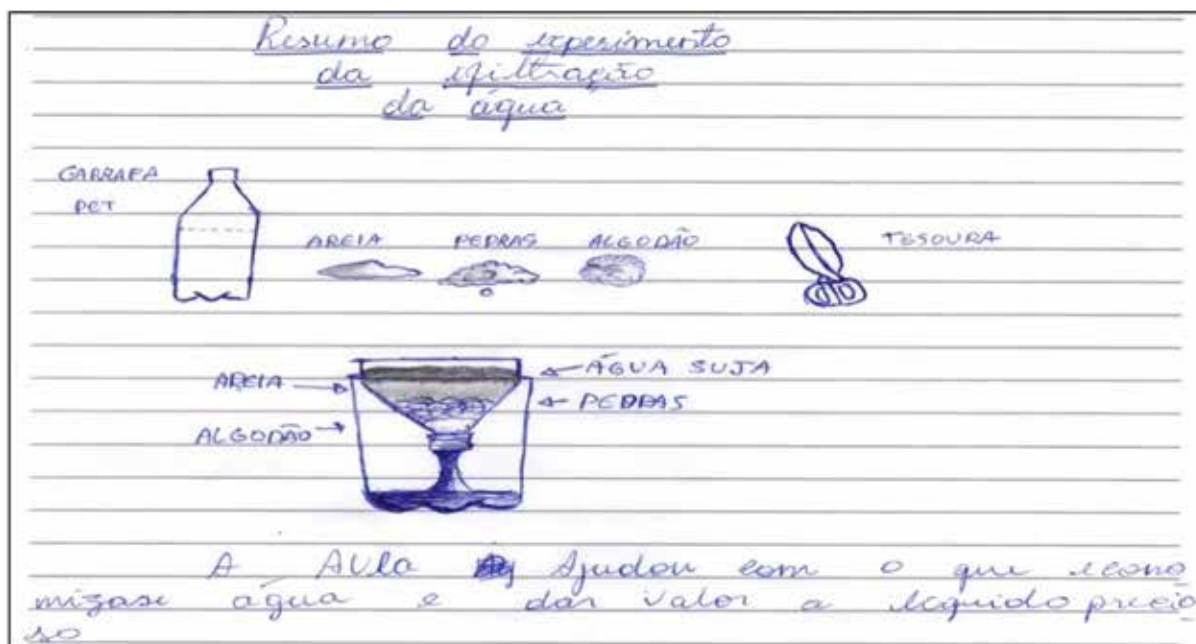 Resumo do experimento
da efiltração
da água
GARRAFA
PET
AREIA
PEDRAS
ALGODÃO
TESOURA
AREIA
ÁGUA SUJA
PEDRAS
ALGODÃO
A AULA Ajudou com o que econo
mizase água e dar valor a leguido precio
so